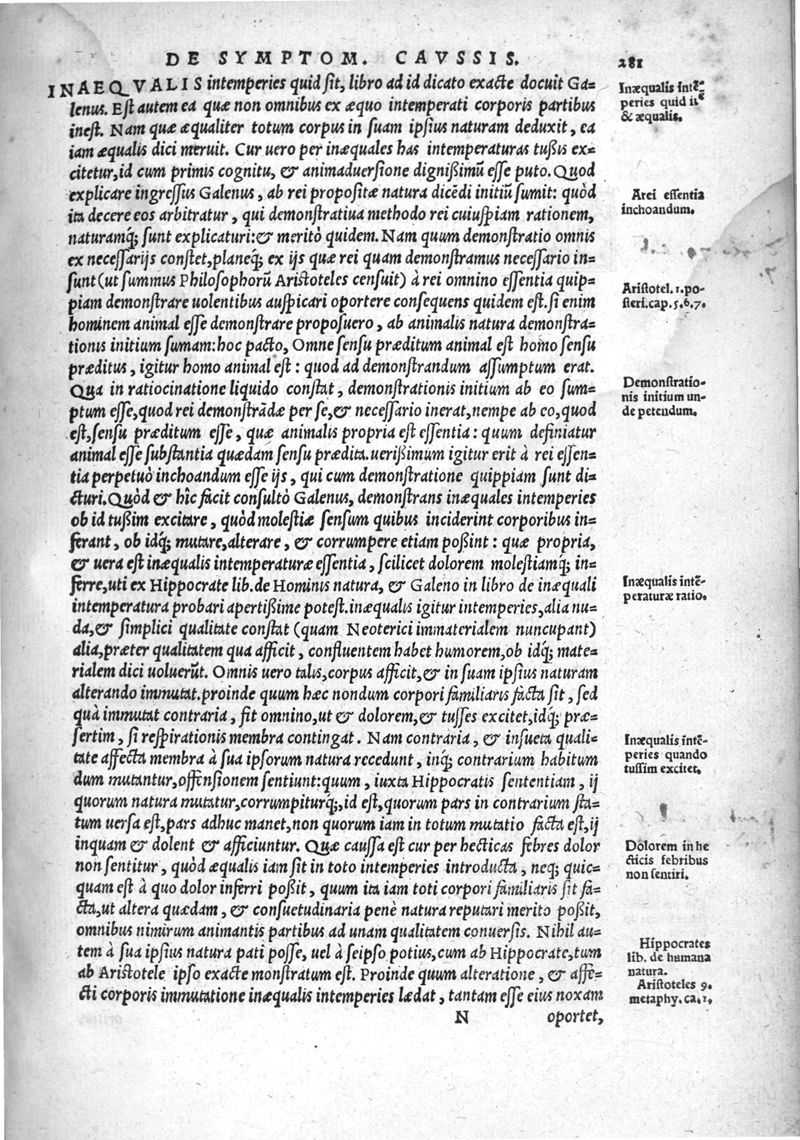 DE SYMPTOM. CAVSSIS. 281
INAEQVALIS intemperies quid sit, libro ad id dicato exacte docuit Ga=
lenus. Est autem ea quæ non omnibus ex æquo intemperati corporis partibus
inest. Nam quæ æqualiter totum corpus in suam ipsius naturam deduxit, ea
iam æqualis dici meruit. Cur uero per inæquales has intemperaturas tußis ex=
citetur, id cum primis cognitu, & animaduersione dignißimũ esse puto. Quod
explicare ingressus Galenus, ab rei propositæ natura dicẽdi initiũ sumit: quòd
ita decere eos arbitratur, qui demonstratiua methodo rei cuiuspiam rationem,
naturamq́; sunt explicaturi: & meritò quidem. Nam quum demonstratio omnis
ex necessarijs constet, planeq́; ex ijs quæ rei quam demonstramus necessario in=
sunt (ut summus Philosophorũ Aristoteles censuit) à rei omnino essentia quip=
piam demonstrare uolentibus auspicari oportere consequens quidem est. si enim
hominem animal esse demonstrare proposuero, ab animalis natura demonstra=
tionis initium sumam: hoc pacto, Omne sensu præditum animal est homo sensu
præditus, igitur homo animal est: quod ad demonstrandum assumptum erat.
Qua in ratiocinatione liquido constat, demonstrationis initium ab eo sum=
ptum esse, quod rei demonstrãdæ per se, & necessario inerat, nempe ab eo, quod
est, sensu præditum esse, quæ animalis propria est essentia: quum definiatur
animal esse substantia quædam sensu prædita. uerißimum igitur erit à rei essen=
tia perpetuò inchoandum esse ijs, qui cum demonstratione quippiam sunt di=
cturi. Quòd & hîc facit consultò Galenus, demonstrans inæquales intemperies
ob id tußim excitare, quòd molestiæ sensum quibus inciderint corporibus in=
ferant, ob idq́; mutare, alterare, & corrumpere etiam poßint: quæ propria,
& uera est inæqualis intemperaturæ essentia, scilicet dolorem molestiamq́; in=
ferre, uti ex Hippocrate lib. de Hominis natura, & Galeno in libro de inæquali
intemperatura probari apertißime potest. inæqualis igitur intemperies, alia nu=
da, & simplici qualitate constat (quam Neoterici immaterialem nuncupant)
alia, præter qualitatem qua afficit, confluentem habet humorem, ob idq́; mate=
rialem dici uoluerũt. Omnis uero talis, corpus afficit, & in suam ipsius naturam
alterando immutat. proinde quum hæc nondum corpori familiaris facta sit, sed
quà immutat contraria, fit omnino, ut & dolorem, & tusses excitet, idq́; præ=
sertim, si respirationis membra contingat. Nam contraria, & insueta quali=
tate affecta membra à sua ipsorum natura recedunt, inq́; contrarium habitum
dum mutantur, offensionem sentiunt: quum, iuxta Hippocratis sententiam, ij
quorum natura mutatur, corrumpiturq́;, id est, quorum pars in contrarium sta=
tum uersa est, pars adhuc manet, non quorum iam in totum mutatio facta est, ij
inquam & dolent & afficiuntur. Quæ caussa est cur per hecticas febres dolor
non sentitur, quòd æqualis iam sit in toto intemperies introducta, neq́; quic=
quam est à quo dolor inferri poßit, quum ita iam toti corpori familiaris sit fa=
cta, ut altera quædam, & consuetudinaria penè natura reputari merito poßit,
omnibus nimirum animantis partibus ad unam qualitatem conuersis. Nihil au=
tem à sua ipsius natura pati posse, uel à seipso potius, cum ab Hippocrate, tum
ab Aristotele ipso exacte monstratum est. Proinde quum alteratione, & affe=
cti corporis immutatione inæqualis intemperies lædat, tantam esse eius noxam
N oportet,
Inæqualis intẽ=
peries quid
& æqualis.
A rei essentia
inchoandum.
Aristotel. 1. po-
steri. cap. 5. 6. 7.
Demonstratio-
nis initium un-
de petendum.
Inæqualis intẽ-
peraturæ ratio.
Inæqualis intẽ-
peries quando
tussim excitet.
Dolorem in he
cticis febribus
non sentiri.
Hippocrates
lib. de humana
natura.
Aristoteles 9.
metaphy. ca. 1.